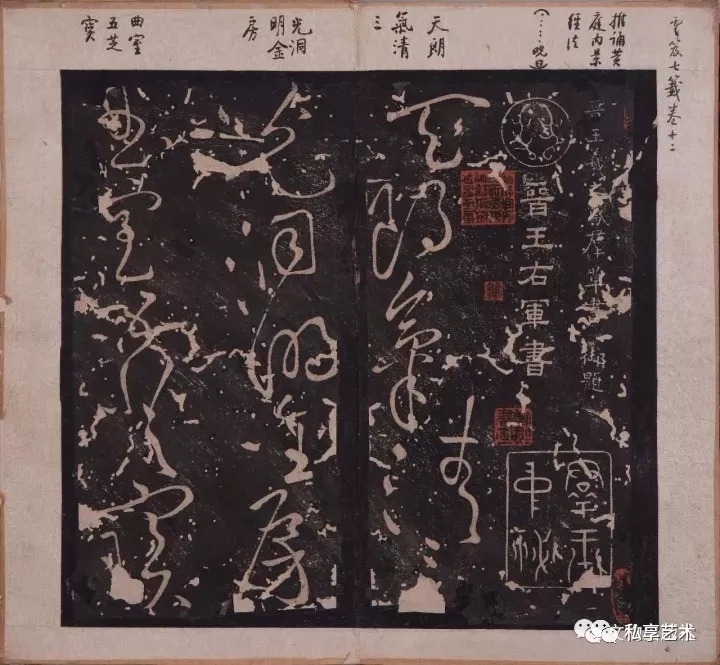 雲笈七籤卷十二
推誦黃
庭內景
經法
天朗
氣清
三
光洞
明金
房
曲室
五芝
寶
草書 御題
晉王右軍書
天朗氣清三
光洞明金房
曲室五芝寶
私享艺术